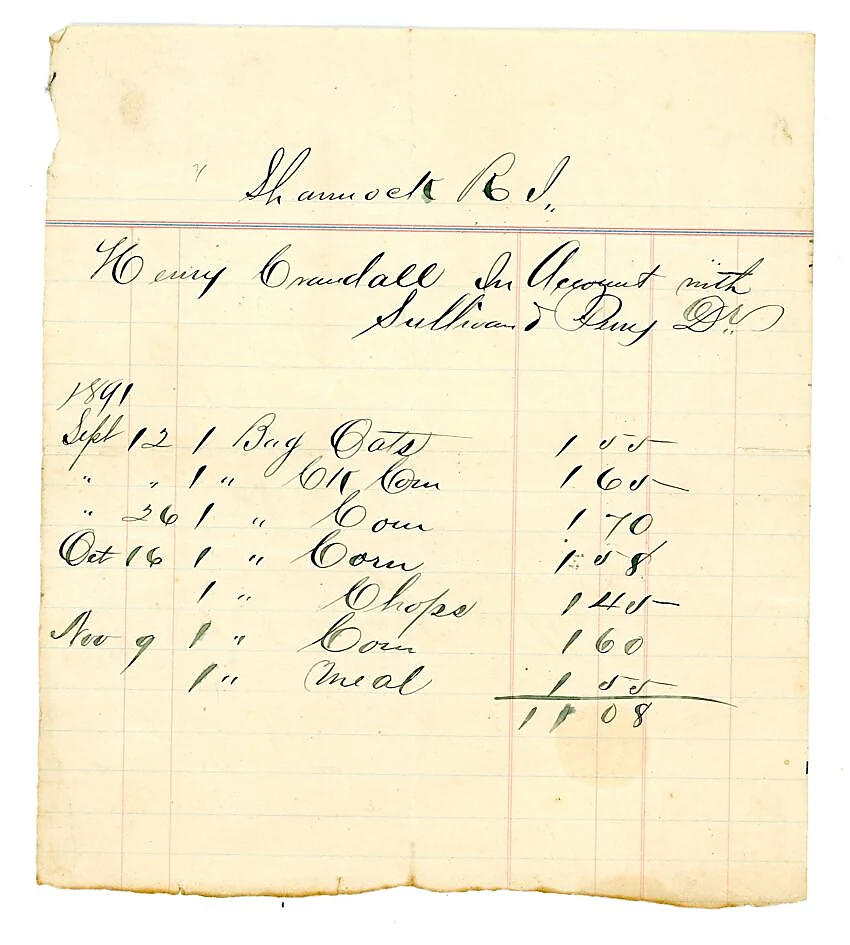 " Shannock R I,,
Henry Crandall In Account with
Sullivan & Perry Dr,,
1891
Sept 12 1 Bag Oats 1 55
" " 1 " Ck Corn 1 65
" 26 1 " Corn 1 70
Oct 16 1 " Corn 1 58
1 " Chops 1 45
Nov 9 1 " Corn 1 60
1 " Meal 1 55
11 08